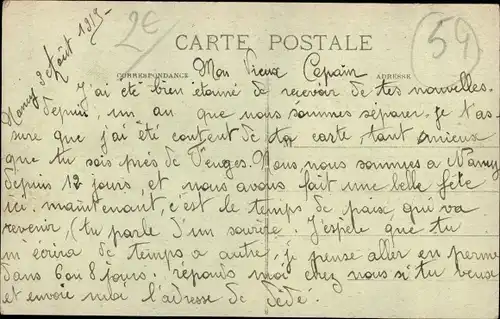 Nancy 3 Août 1919-
2€
59
CARTE POSTALE
CORRESPONDANCE
ADRESSE
Mon Vieux Copain
J'ai été bien étonné de recevoir de tes nouvelles.
depuis, un an que nous sommes séparer. Je t'as-
sure que j'ai été content de ta carte, tant mieux
que tu sois près de Nous nous sommes a Nancy
depuis 12 jours, et nous avons fait une belle fête
ici. maintenant, c'est le temps de paix, qui va
revenir, (tu parle d'un sourire. J'espère que tu
m'écrira de temps a autre, je pense aller en perme
dans 6 ou 8 jours. reponds moi chez nous si tu veux
et envoie moi l'adresse de Dédé.